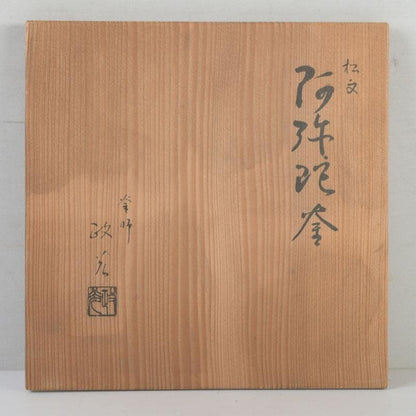 松文
阿弥陀釜
釜師
政光